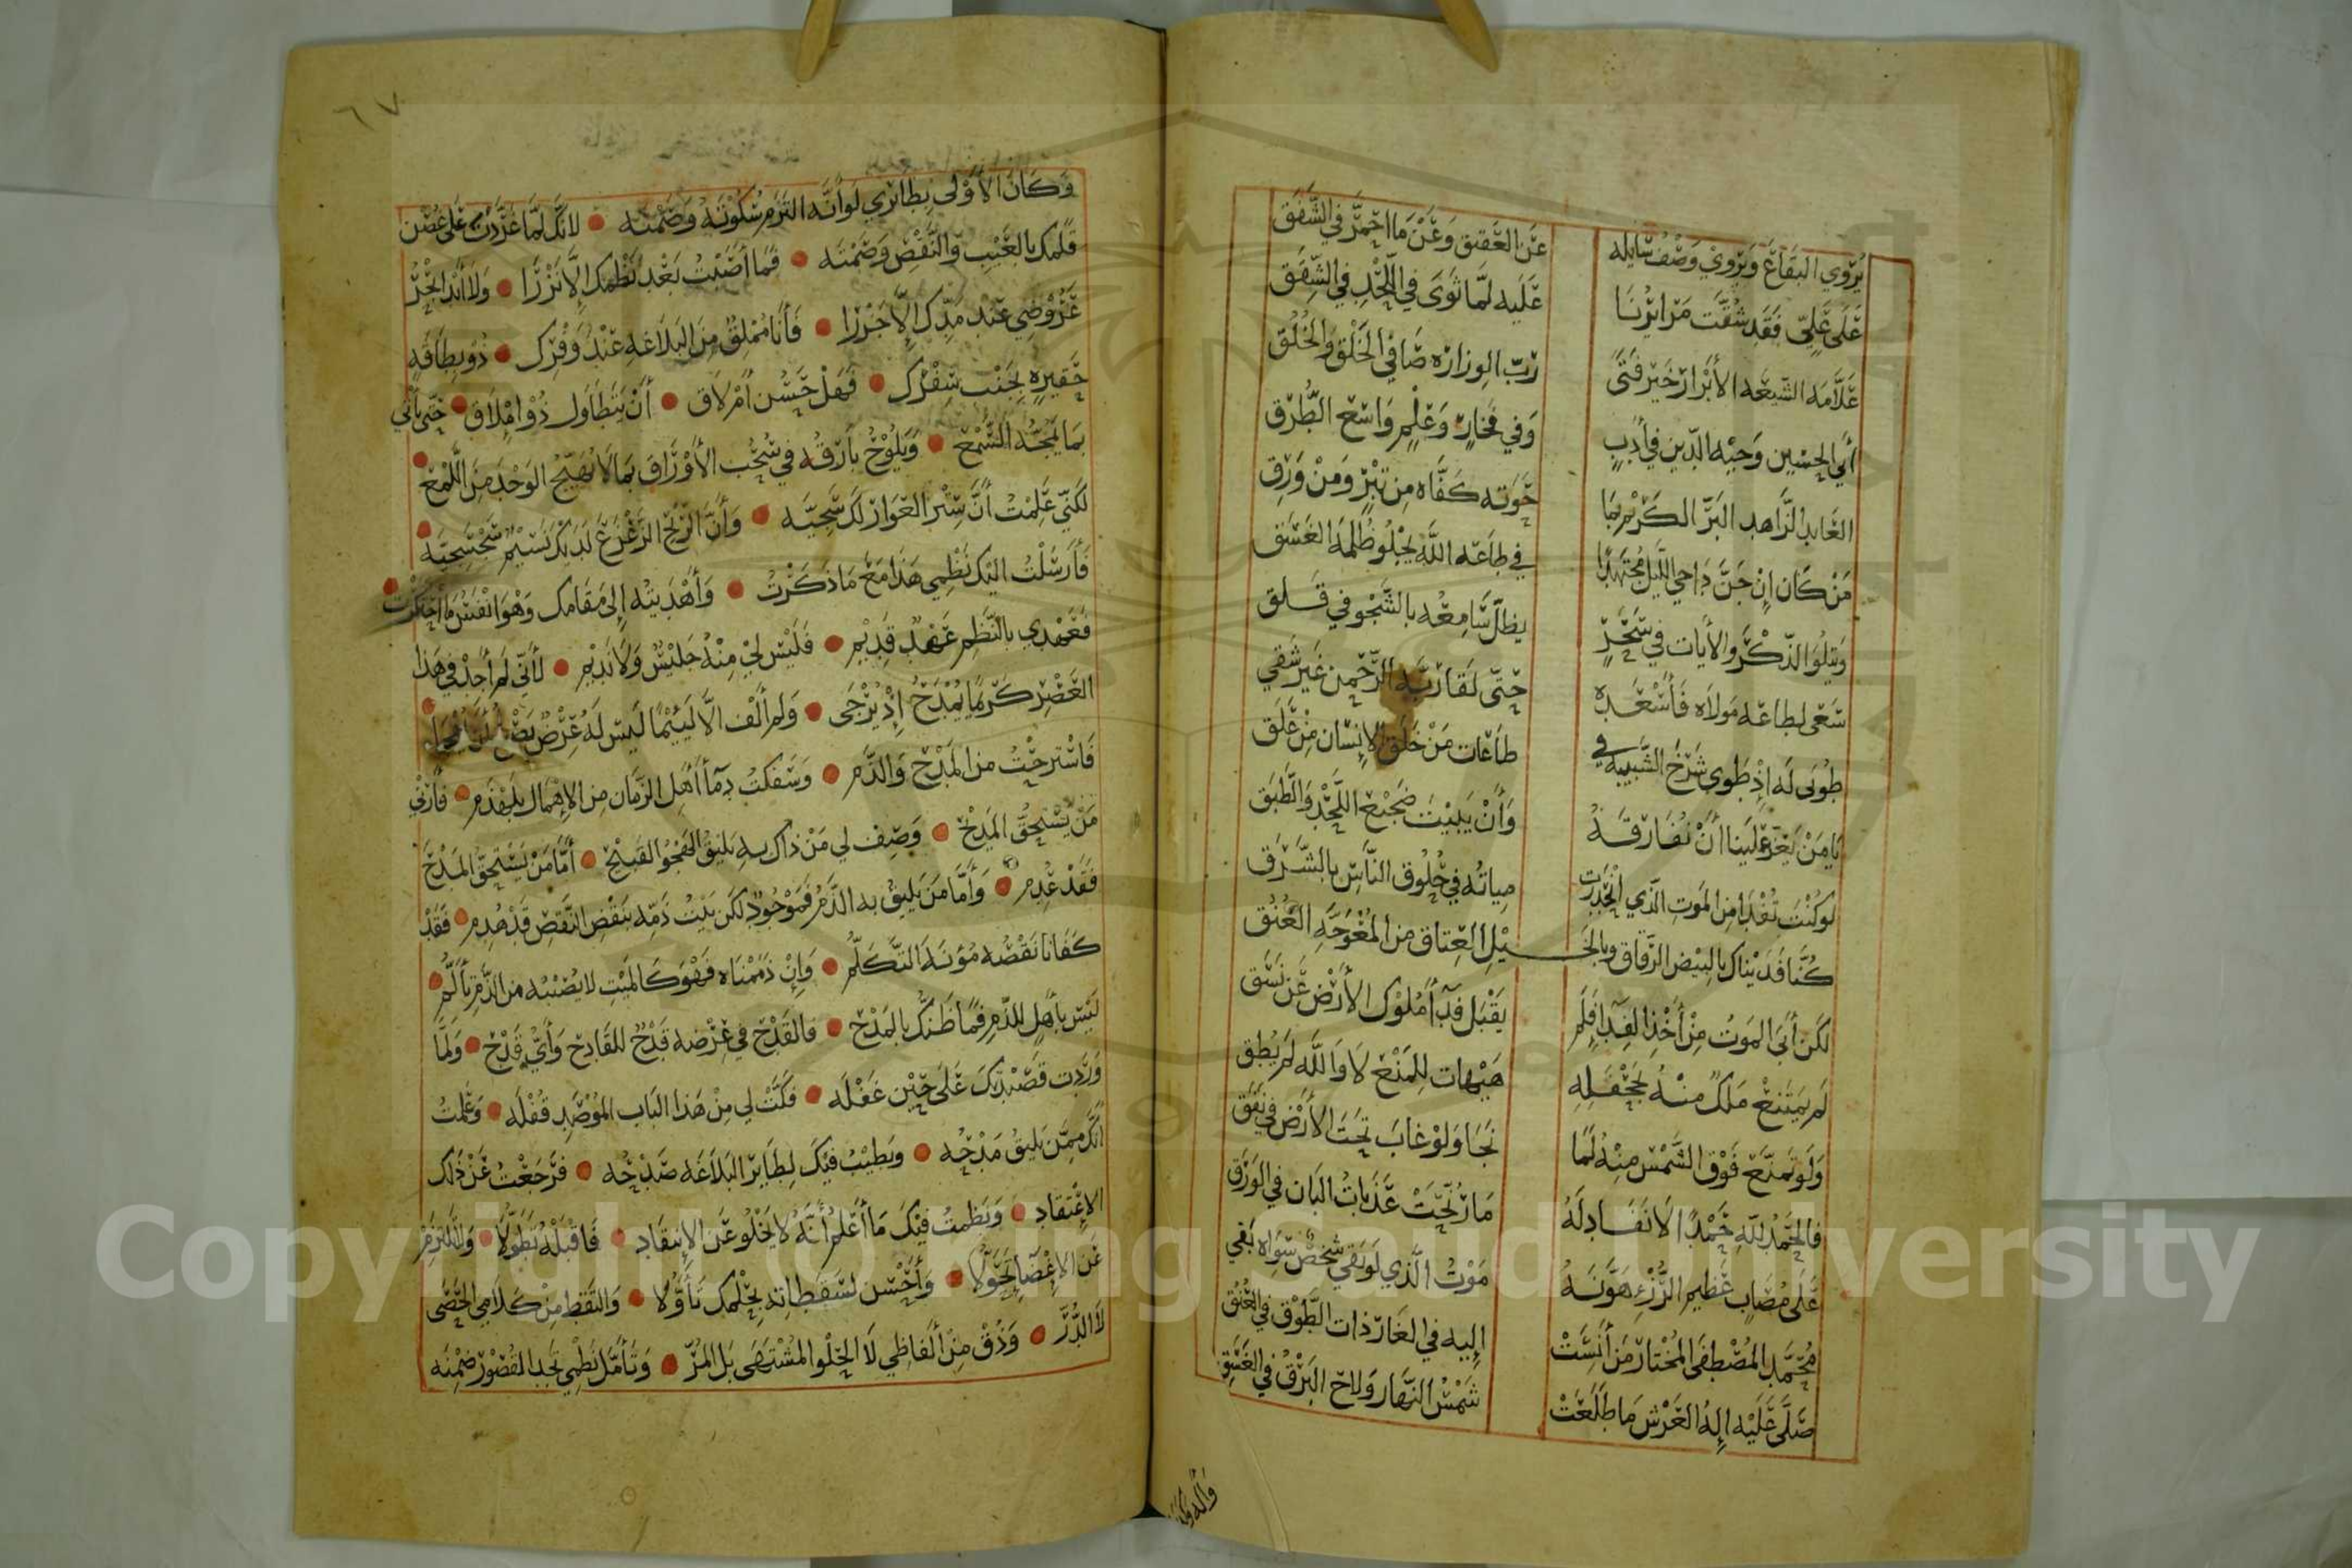 يُرْوي البقاعَ ويَرْوي وَصْفُ سَايله عن العقيق وَعَنْ مَا احْمَرَّ في الشَّفَقِ
عَلَى عَلِيّ فَقَد شُقَّت مَرَائرُنَا عَلَيه لَمَّا ثَوَى في اللَّحْدِ في الشِّقَقِ
عَلَّامَه الشّيعَه الأَبْرار خَير فَتًى رَبّ الوزارَه صَافي الخَلْقِ وَالخُلُقِ
أبي الحسين وَجيْه الدّين في أَدَبٍ وَفي فَخَارٍ وَعْلِمٍ وَاسِعِ الطُّرُقِ
العَابد الزَّاهد البَرّ الكَرْيم بمَا حَوَته كَفَّاه مِن تِبْرٍ وَمنْ وَرِقِ
مَنْ كَان إنْ جَنَّ دَاجي اللَّيل مُجتَهدًا في طاعَه اللَّه يجْلُو ظُلمَهَ الغَسَقِ
وَيتلُو الذّكْرَ والأيَات في سَحَرٍ يظلّ سَامِعُه بالشَّجْو في قَلَق
سَعَى لطاعَه مَولَاه فَأَسْعَدَه حتّى لقَا رَبَّه الرَّحْمن غير شَقي
طوُبَى له إذْ طَوى شَرْخ الشَّبيبه في طاعَات مَنْ خَلَقَ الإنسَان مِنْ عَلَق
يا مَنْ يَعزّ عَلَينا أنْ نُفَارقَهُ وَأَنْ يَبيْتَ ضَجيْعَ اللَّحْدِ وَالطَّبَق
لو كُنْتَ تُفْدَا من المَوتِ الَّذي انْحَدَرت مياتُه في حُلُوق النَّاس بالشَّرَق
كُنَّا فَدَيْنَاك بالبيْض الرّقاق وبالخَيْلِ العِتاق من المُعْوَجَّه العُنُق
لكن أبَى المَوتُ مِنْ أَخْذِ الفِدَا فَلَم يَقْبَل فِدَاءَ مُلوْك الأَرْض عَنْ نَسَق
لم يمتَنعْ مَلكٌ منْهُ بجَحْفَلِه هَيْهات للمَنْعِ لا وَاللَّه لم يُطِق
وَلَو تمنَّع فَوْق الشَّمْس منهُ لمَا نَجَا وَلوْ غابَ تحتَ الأَرْض في نَفَق
فالحَمدُ للَّهِ حَمْدًا لا نَفَاد لَهُ مَا رُنّحَتْ عَذَباتُ البَان في الوَرَق
عَلَى مُصَابٍ عَظيمِ الرُّزْءِ هَوَّنَهُ مَوْتُ الَّذي لَو بَقي شخْصٌ سَوَاه بَقي
مُحَمَّدِ المُصْطفَى المُخْتار مَن أَنسَتْ إليه في الغَار ذات الطَّوْق في العُنُق
صَلَّى عَلَيْه إلهُ العَرْش مَا طَلَعَتْ شَمْسُ النّهَار وَلاحَ البَرْقُ في الغَسَق
٦٧
وَكَانَ الأَوْلى بطائري لَو أنَّه التزَم سُكُوتَهُ وَصَمْته لانَّكَ لمَّا غَرَّدتَ عَلى غصْن
قَلمك بالعَيْب وَالنَّقْصِ وَصَمْتَه فمَا أَصَبْتُ بَعْدَ نَظمك إلّا نَزْرًا وَلا أَبْدا بحْرُ
عَرُوْضي عنْد مَدّك إلَّا جَزْرَا فَأَنَا مُمْلِقٌ مِنَ البَلَاغه عنْدَ وَفْرك ذُو بطاقَه
حَقيره بجَنْب سِفْرك فَهَلْ حَسُن امْلاق أَنْ يَتَطاوَل ذُو امْلَاق حَتّى يأتي
بمَا يمجّهُ السَّمْع وَيَلُوْحُ بارقُه في سُحُب الأَوْراقِ بمَا لَا يهيّجُ الوَجْدَ مِنَ اللَّمْعِ
لكنّي عَلمْتُ أَنَّ سِتْر العَوَار لكَ سَجيَّه وَأَنَّ الرّيْح الزَّعْزَعَ لدَيكَ نَسيْم
فَأَرْسَلْتُ اليك نَظْمِي هَذا مَعَ مَا ذَكَرْتُ وَأَهْدَيتُه إلى مَقَامك وَهوَ انفَسُ ما احْتكَرْت
فعَهْدِي بالنَّظمِ عَهْدٌ قَديْم فَلَيْسَ لي منْهُ جَليْسٌ وَلَا نَديْم لأنّي لم أَجدْ في هَذا
العَصْر كَرْيمًا يُمْدَحُ إذْ يُرْجَى وَلم أَلْف إلَّا لَئيْمًا لَيسَ لَهُ عِرْضٌ
فَاسْترحْتُ من المَدْحِ وَالذَّم وَسَفكتُ دِمَاءَ أَهل الزَّمَان مِن الإهْمَال بلَهْذَم فَأَرني
مَنْ يَسْتَحقُّ المَدْح وَصِف لي مَنْ ذاك به يَليْقُ الهَجْو القَبيْح أَمَّا مَنْ يَسْتَحقّ المَدْحَ
فقَدْ عُدِم وَأَمَّا مَن يَليقُ به الذَّمُّ فمَوْجُودٌ لكن بَيْتُ ذَمّه بنَقْض النَّقصِ قَد هُدِم فَقَدْ
كفَانا نَقْصُه مُؤنَةَ التَّكَلُّم وَإنْ ذَمَمْنَاه فَهْوَ كَالمَيْتِ لا يُصْيبُه من الذّم تَأَلُّم
لَيْسَ بأَهلٍ للذّم فمَا ظَنّكَ بالمَدْحْ فالقَدْح في عِرْضه قَدْحٌ للقَادِح وَأَيّ قَدْح وَلَمَّا
وَرَدَت قَصْيدَتكَ عَلَى حيْن غَفْلَه فكّتْ لي مِنْ هَذا البَاب المُوْصَد قُفْلَه وَعَلمتُ
انَّكَ ممَّن يَليقُ مَدْحُه وَيَطيْبُ فيْكَ لطَايرْ البَلاغَه صَدْحُه فرَجَعْتُ عَنْ ذَلك
الاعْتقَاد وَنَظمتُ فيْكَ مَا أَعْلَمُ أنَّهُ لا يَخْلُو عَن الانتقَاد فَاقْبَلْهُ تَطَوُّلًا وَلا تَلتزمْ
عَن الاغضَا تحَوُّلا وَأَحْسن لسَقَطاته بحلْمك تَأَوُّلا وَالتَقط مِنْ كَلَامي الحَصَى
لا الدُّرّ وَذُقْ مِنْ أَلفاظِي لَا الحُلْو المُشْتَهَى بَل المُرّ وَتَأَمَّل نَظْمي تَجد القُصُوْرَ ضِمْنَه
Copyright © King Saud University